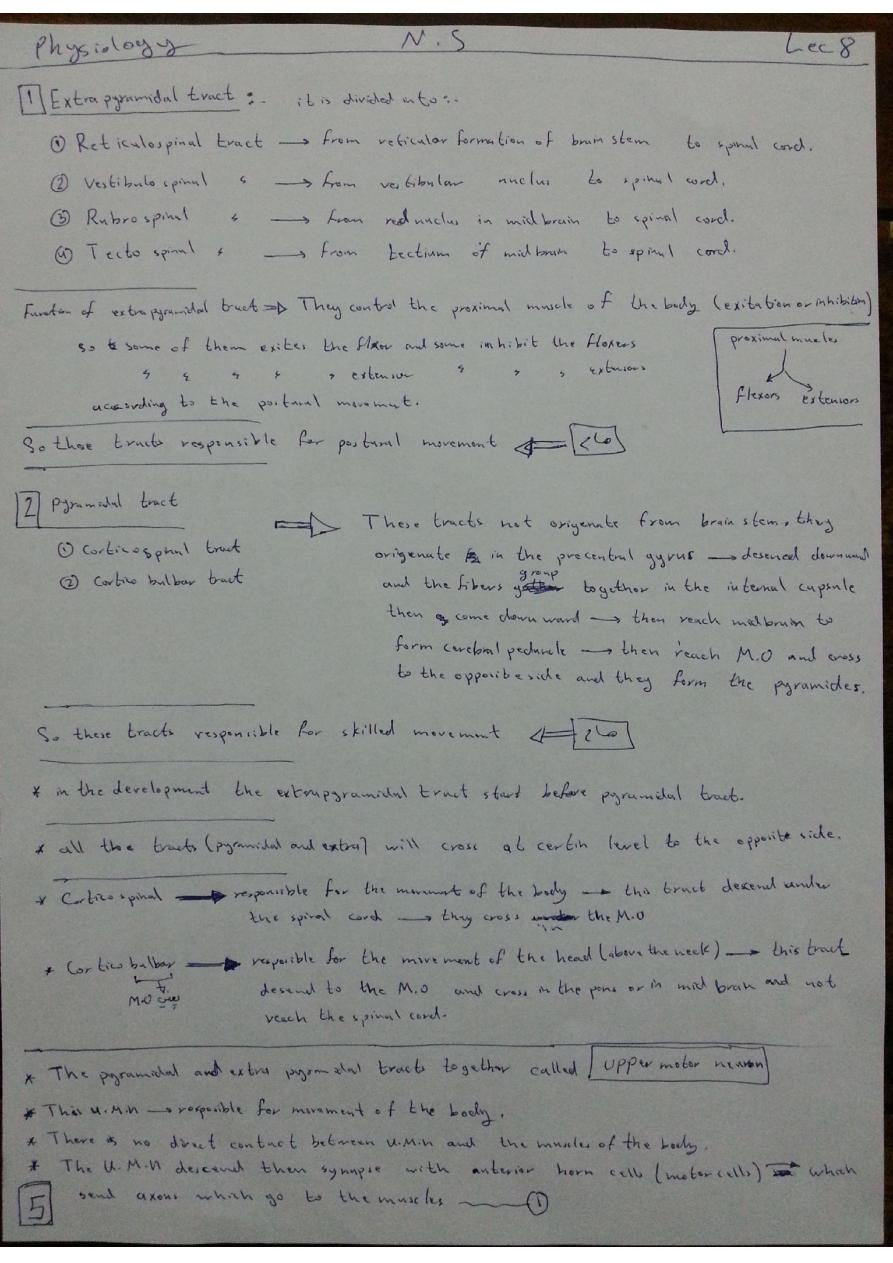 Physiology N.S Lec 8
1 Extrapyramidal tract :. it is divided into :.
① Reticulospinal tract → from reticular formation of brain stem to spinal cord.
② Vestibulo spinal " → from vestibular nuclus to spinal cord.
③ Rubro spinal " → from red nuclus in mid brain to spinal cord.
④ Tecto spinal " → from tectium of mid brain to spinal cord.
Function of extrapyramidal tract ⇒ They control the proximal muscle of the body (exitation or inhibition)
so some of them exites the flexor and some inhibit the floxers
" " " " " extensor " " " extensors
according to the postural movement.
proximal muscles
flexors extensors
So these tracts responsible for postural movement ⇐
2 Pyramidal tract
① Corticospinal tract
② Cortico bulbar tract
⇒ These tracts not origenate from brain stem, they
origenate in the precentral gyrus → desened downward
and the fibers group together in the internal capsule
then come down ward → then reach midbrain to
form cerebral peduncle → then reach M.O and cross
to the opposite side and they form the pyramides.
So these tracts responsible for skilled movement ⇐
* in the development the extrapyramidal tract start before pyramidal tract.
* all these tracts (pyramidal and extra) will cross at certin level to the opposite side.
* Cortico spinal → responsible for the movement of the body → this tract descend under
the spinal cord → they cross in the M.O
* Cortico bulbar → resposible for the movement of the head (above the neck) → this tract
M.O يعني
desend to the M.O and cross in the pons or in mid brain and not
reach the spinal cord.
* The pyramidal and extra pyramidal tracts together called upper motor neuron
* This U.M.N → resposible for movement of the body.
* There is no direct contact between U.M.N and the muscles of the body.
* The U.M.N descend then synapse with anterior horn cells (motor cells) → which
send axons which go to the muscles — ①
5